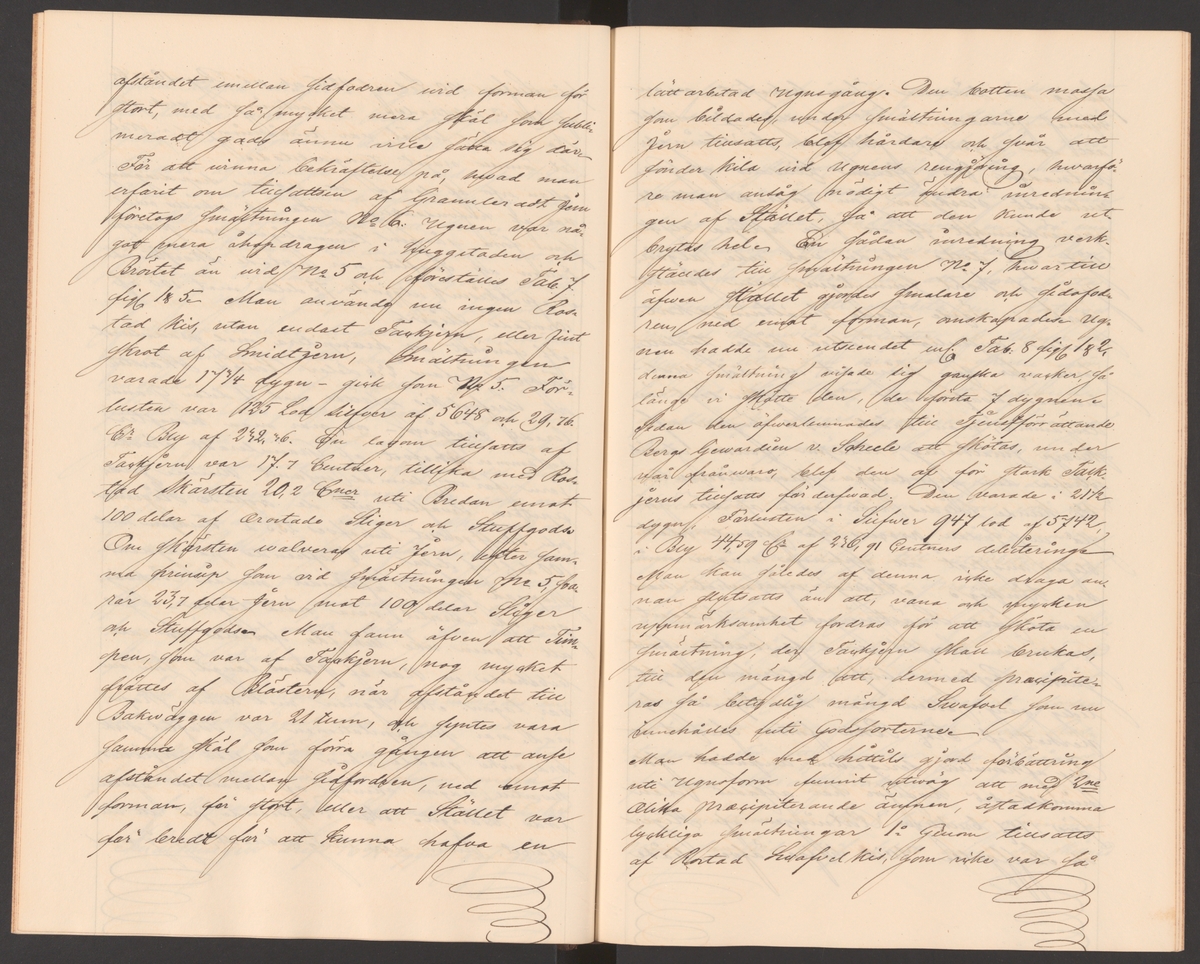 afståndet emellan sidfodren vid forman för
stort, med så mycket mera skäl som subli-
meradt gods ännu ville sätta sig där.
För att vinna bekräftelse på, hvad man
erfarit om tillsatsen af Granuleradt Jern
företogs smältningen No 6. Ugnen var nå-
got mera åhopdragen i skuggstaden och
Bröstet än vid No 5 och föreställes Tab. 7
fig 1 & 5. Man använde nu ingen Ros-
tad kis, utan endast Tackjern, eller fint
skrot af Smidtjern, Smältningen
varade 17 3/4 dygn – gick som No 5. För-
lusten var 125 Lod Silfver af 5648 och 29,76
Cr Bly af 232,76. En lagom tillsatts af
Tackjern var 17.7 Centner, tillika med Ros-
tad Skärsten 20,2 Cner uti Bredan emot
100 delar af orostade Sliger och Stuffgods.
Om skärsten valveras uti Jern, efter sam-
ma princip som vid smältningen No 5, sva-
rar 23,7 delar Jern mot 100 delar Sliger
och Stuffgods. Man fann äfven att Tim-
pen, som var af Tackjern, nog mycket
frättes af Blästern, när afståndet till
Bakväggen var 21 tum, och syntes vara
samma skäl som förra gången att anse
afståndet mellan sidfodren, ned emot
forman, för stort, eller att Stället var
för bredt för att kunna hafva en
lätt arbetad Ugnsgång. Den botten massa
som bildades under smältningarne med
Jern tillsatts, blef hårdare och svår att
sönder kila vid Ugnens rengöring, hvarfö-
re man ansåg nödigt ändra inrednin-
gen af Stället, så att den kunde ut
brytas hel. En sådan inredning verk-
ställdes till smältningen No 7, hvartill
äfven Stället gjordes smalare och sidofod-
ren, ned emot forman, omskapades. Ug-
nen hade nu utseendet enl. Tab. 8 fig 1 & 2,
denna smältning visade sig ganska vacker, så
länge vi skötte den, de första 7 dygnen.
Sedan den öfverlemnades till Tjensteförrättande
Bergs Gewardien v. Scheele att skötas, under
vår frånvaro, blef den af för stark Tack-
jerns tillsatts förderfvad. Den varade i 21 1/2
dygn; Förlusten i Silfver 947 lod af 5742,
i Bly 44,59 Cr af 236,91 Centners debitering.
Man kan således af denna icke draga an-
nan slutsatts än att, vana och mycken
uppmärksamhet fordras för att sköta en
smältning, der Tackjern skall brukas,
till den mängd att, dermed præcipite-
ras så betydlig mängd Svafvel som nu
innehålles uti Godssorterne.
Man hade med hittils gjord förbättring
uti Ugnsform funnit utväg att med 2ne
olika præcipiterande ämnen, åstadkomma
lyckliga smältningar 1o Genom tillsatts
af Rostad Svafvelkis, som icke var så